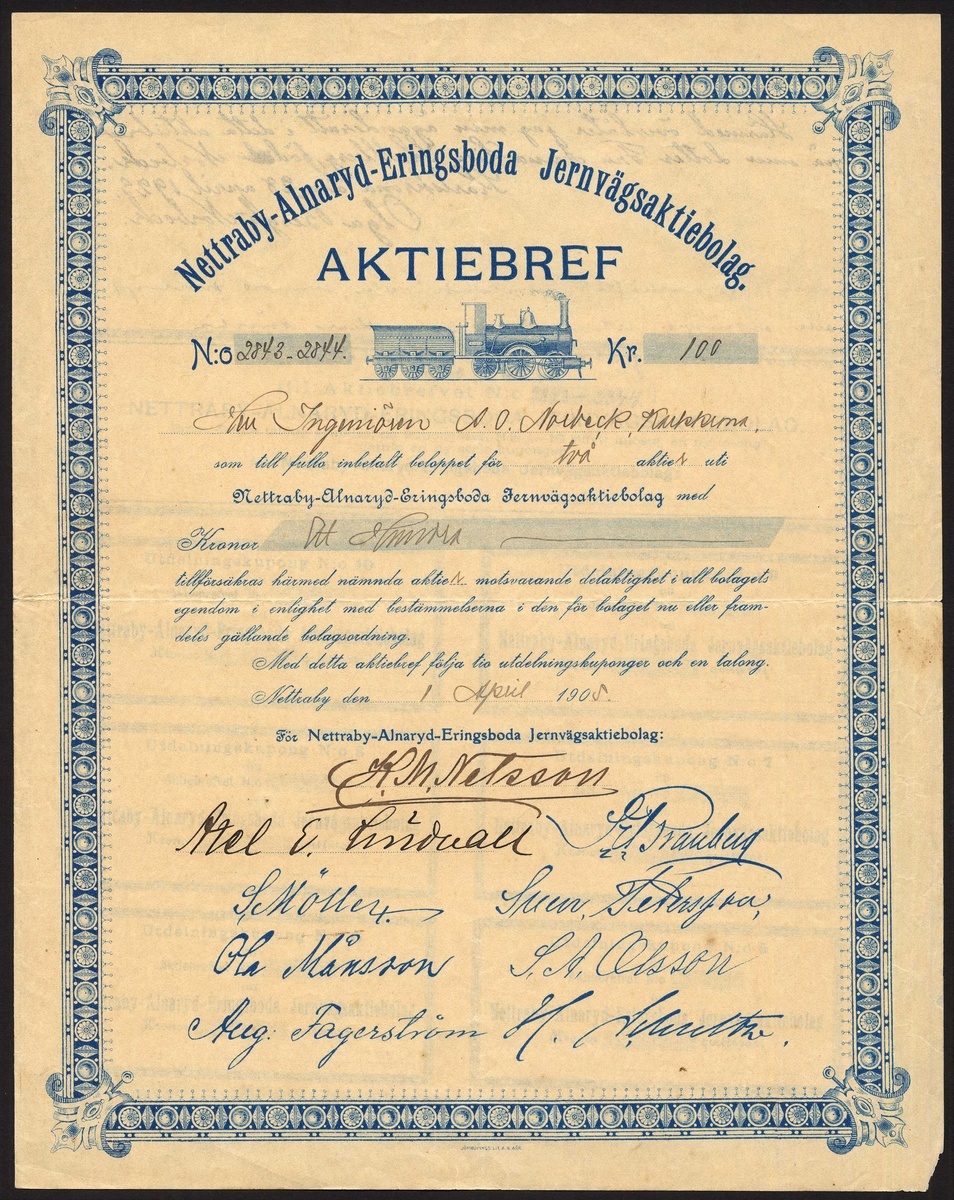 Nettraby-Alnaryd-Eringsboda Jernvägsaktiebolag.
AKTIEBREF
N:o 2843-2844. Kr. 100
Herr Ingeniören A. O. Norbeck, Karlskrona
som till fullo inbetalt beloppet för två aktier uti
Nettraby-Alnaryd-Eringsboda Jernvägsaktiebolag med
Kronor Ett Hundra
tillförsäkras härmed nämnda aktier motsvarande delaktighet i all bolagets
egendom i enlighet med bestämmelserna i den för bolaget nu eller fram-
deles gällande bolagsordning.
Med detta aktiebref följa tio utdelningskuponger och en talong.
Nettraby den 1 April 1908.
För Nettraby-Alnaryd-Eringsboda Jernvägsaktiebolag:
K. M. Nelsson
Axel E. Lindvall
S Möller Sven Petersson,
Ola Månsson S. A. Olsson
Aug. Fagerström H. Schultz.